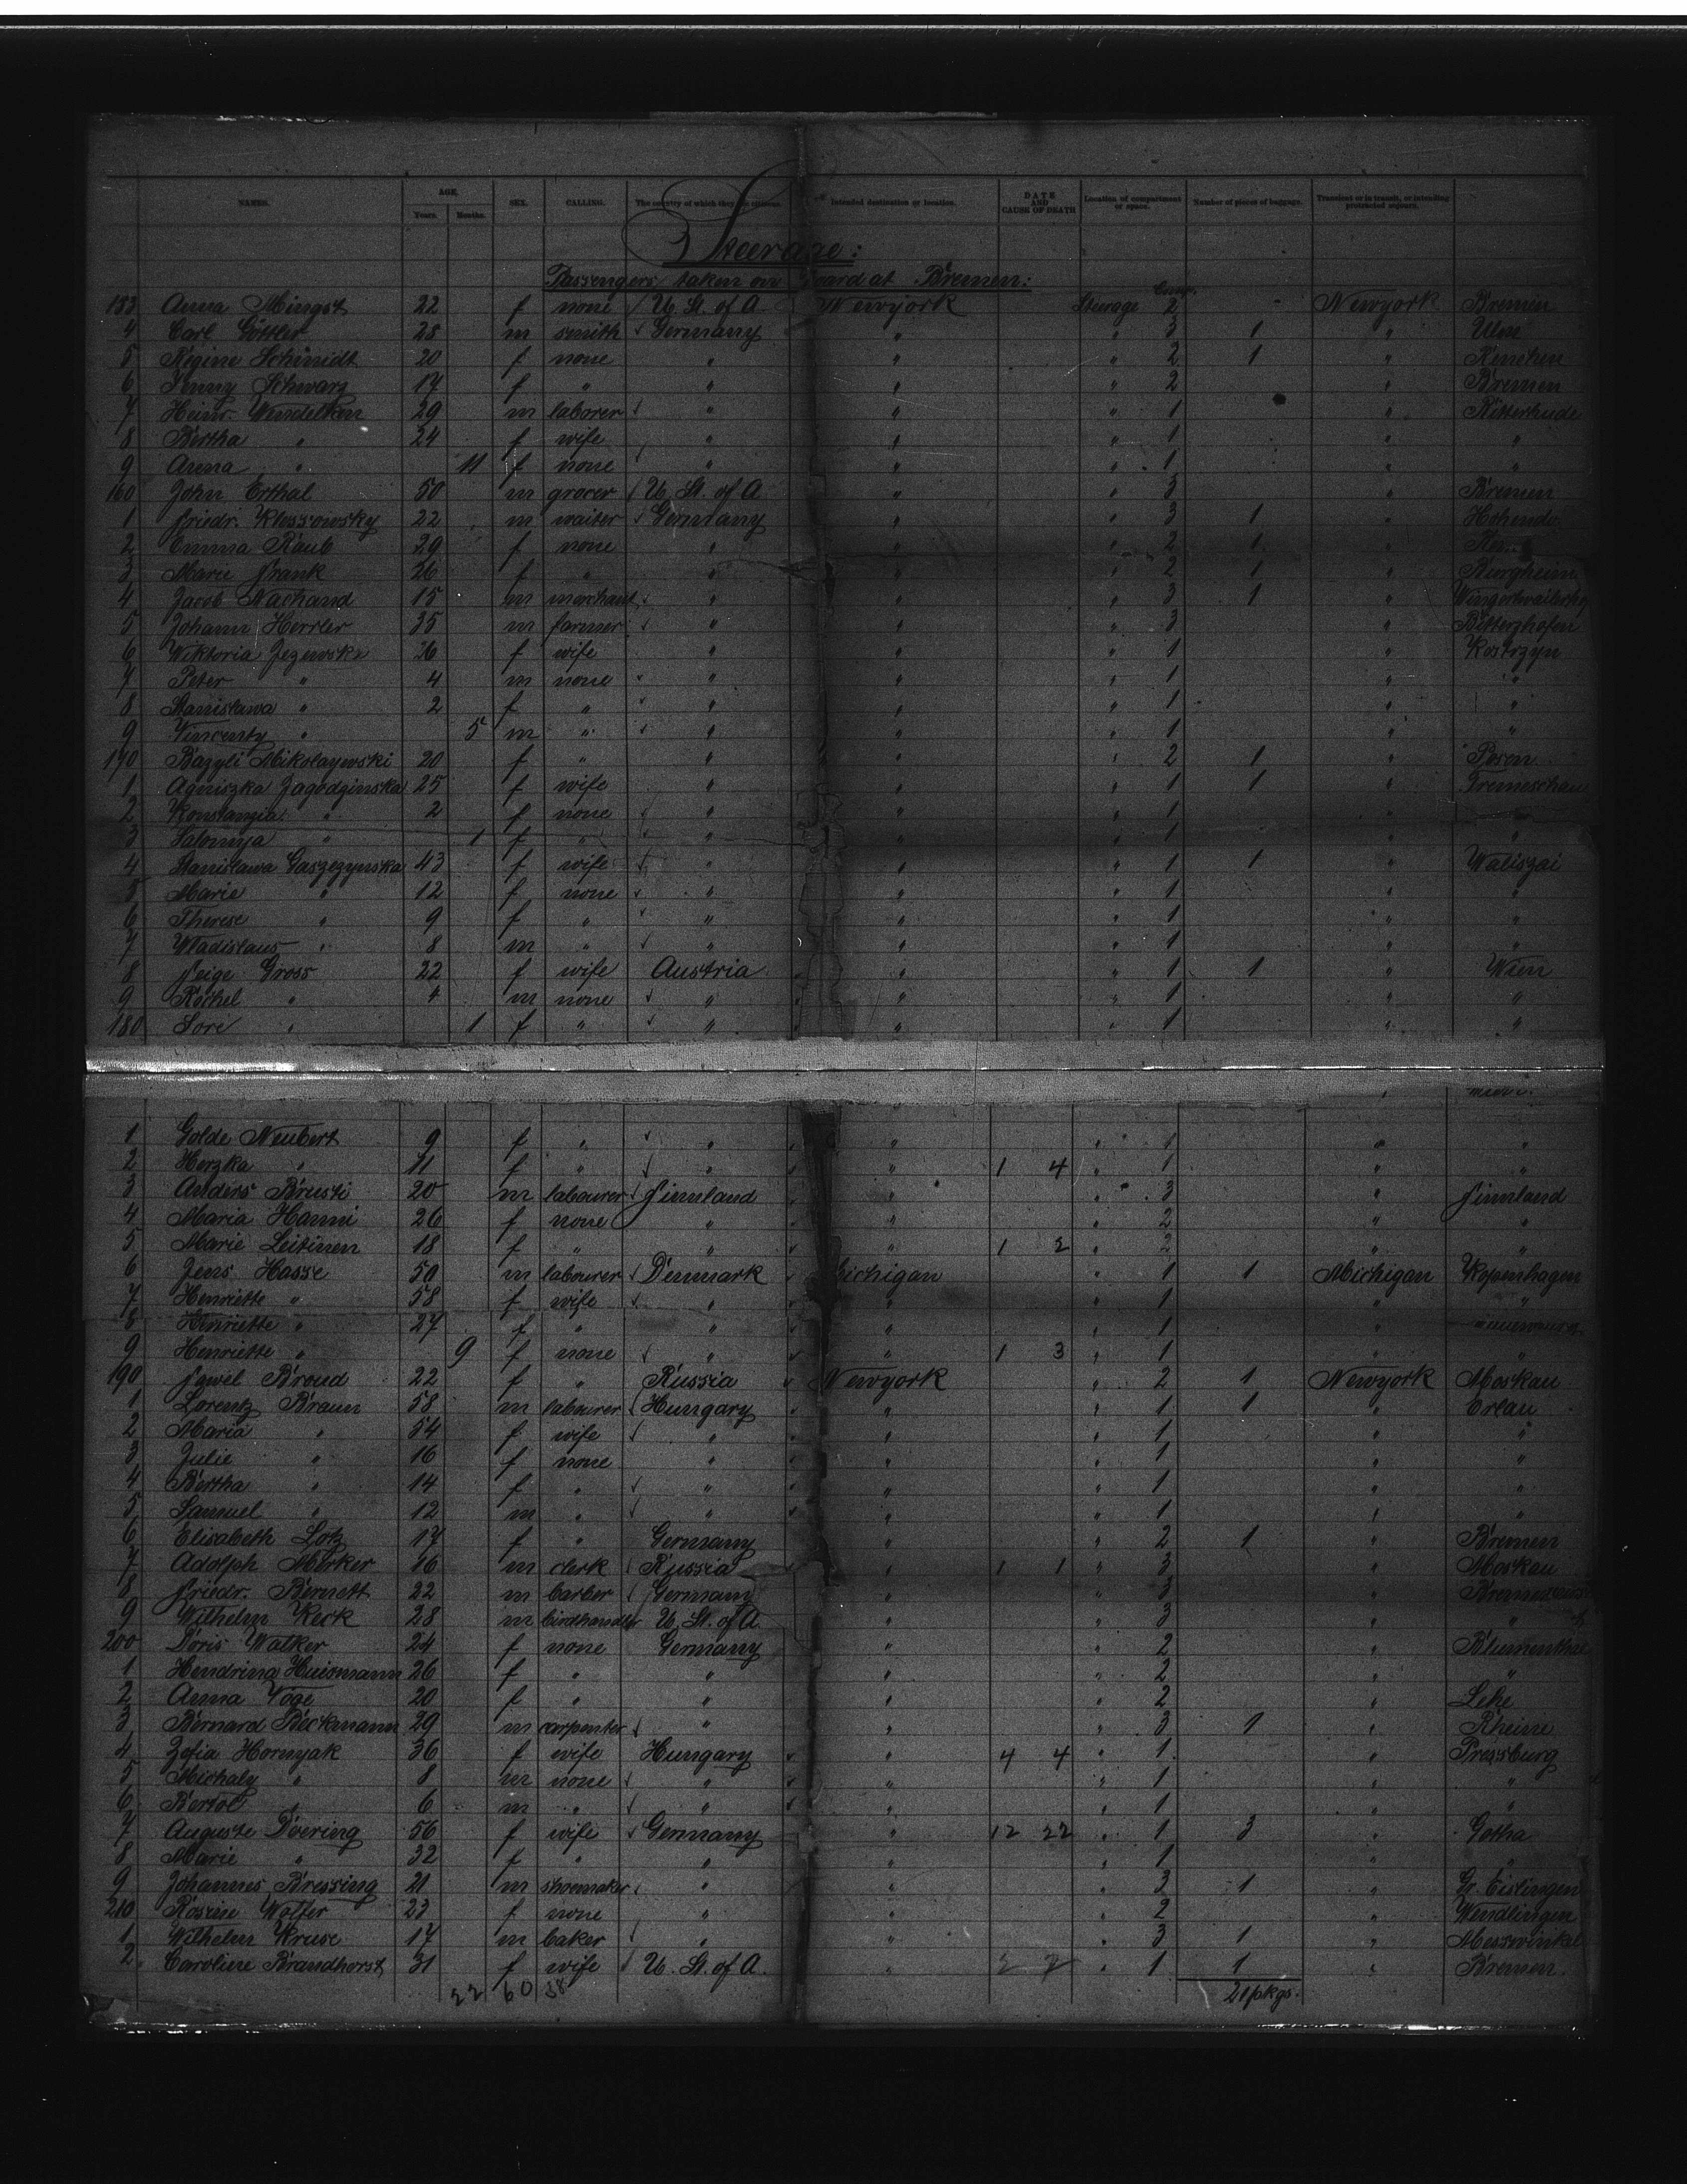 NAMES. AGE. Years. Months. SEX. CALLING. The country of which they are citizens. Intended destination or location. DATE AND CAUSE OF DEATH Location of compartment or space. Number of pieces of baggage. Transient or in transit, or intending protracted sojourn.
Steerage:
Passengers taken on board at Bremen:
153 Anna Mingst 22 f none U. St. of A. Newyork Steerage Comp. 2 - Newyork Bremen
4 Carl Göttler 28 m smith Germany " " 3 1 " Ulm
5 Regine Schmidt 20 f none " " " 2 1 " Renchen
6 Jenny Schwarz 17 f " " " " 2 " Bremen
7 Heinr. Windelken 29 m laborer " " " 1 " Ritterhude
8 Bertha " 24 f wife " " " 1 " "
9 Anna " 11 f none " " " 1 " "
160 John Erthal 50 m grocer U. St. of A. " " 3 " Bremen
1 Friedr. Klossowsky 22 m waiter Germany " " 3 1 "
2 Emma Raub 29 f none " " " 2 1 "
3 Marie Frank 26 f " " " " 2 1 " Bergheim
4 Jacob Nachand 15 m merchant " " " 3 1 "
5 Johann Herrler 35 m farmer " " " 3 " Bitterghofen
6 Wiktoria Jezewski 26 f wife " " " 1 " Kostrzyn
7 Peter " 4 m none " " " 1 " "
8 Stanislawa " 2 f " " " " 1 " "
9 Vincenty " 5 m " " " " 1 " "
170 Bazyli Mikolayewski 20 f " " " " 2 1 " Posen
1 Agniszka Jagodzinska 25 f wife " " " 1 1 " Tremeschau
2 Konstanzia " 2 f none " " " 1 "
3 Salomya " 1 f " " " " 1 " "
4 Stanislawa Gaszezynska 43 f wife " " " 1 1 " Waliszai
5 Marie " 12 f none " " " 1 " "
6 Therese " 9 f " " " " 1 " "
7 Wladislaus " 8 m " " " " 1 " "
8 Feige Gross 22 f wife Austria " " 1 1 " Wien
9 Rochel " 4 m none " " " 1 " "
180 Sore " 1 f " " " " 1 " "
1 Golde Neubert 9 f " " " " 1 " "
2 Herzka " 11 f " " " 1 4 " 1 " "
3 Anders Brusti 20 m labourer Finnland " " 3 " Finnland
4 Maria Hanni 26 f none " " " 2 " "
5 Marie Leitinen 18 f " " " 1 2 " 2 " "
6 Jens Hasse 50 m labourer Denmark Michigan " 1 1 Michigan Kopenhagen
7 Henriette " 58 f wife " " " 1 " "
8 Henriette " 27 f " " " " 1 "
9 Henriette " 9 f none " " 1 3 " 1 " "
190 Fewel Broud 22 f " Russia Newyork " 2 1 Newyork Moskau
1 Lorentz Braun 58 m labourer Hungary " " 1 1 " Erlau
2 Maria " 54 f wife " " " 1 " "
3 Julie " 16 f none " " " 1 " "
4 Bertha " 14 f " " " " 1 " "
5 Samuel " 12 m " " " " 1 " "
6 Elisabeth Lotz 17 f " Germany " " 2 1 " Bremen
7 Adolph Merker 16 m clerk Russia " 1 1 " 3 " Moskau
8 Friedr. Bennett 22 m barber Germany " " 3 "
9 Wilhelm Keck 28 m birdhandler U. St. of A. " " 3 " "
200 Doris Walker 24 f none Germany " " 2 " Blumenthal
1 Hendrina Huismann 26 f " " " " 2 " "
2 Anna Voge 20 f " " " " 2 " Lehe
3 Bernard Beckmann 29 m carpenter " " " 3 1 " Rheine
4 Zofia Hornyak 36 f wife Hungary " 4 4 " 1 " Pressburg
5 Michaly " 8 m none " " " 1 " "
6 Bertol " 6 m " " " " 1 " "
7 Auguste Doering 56 f wife Germany " 12 22 " 1 3 " Gotha
8 Marie " 32 f " " " " 1 " "
9 Johannes Bressing 21 m shoemaker " " " 3 1 " Gr. Eislingen
210 Rosine Wolfer 23 f none " " " 2 " Wendlingen
1 Wilhelm Kruse 17 m baker " " " 3 1 " Messwinkel
2 Caroliene Brandhorst 31 f wife U. St. of A. " 2 7 " 1 1 " Bremen
22 60 38 21 pkgs.